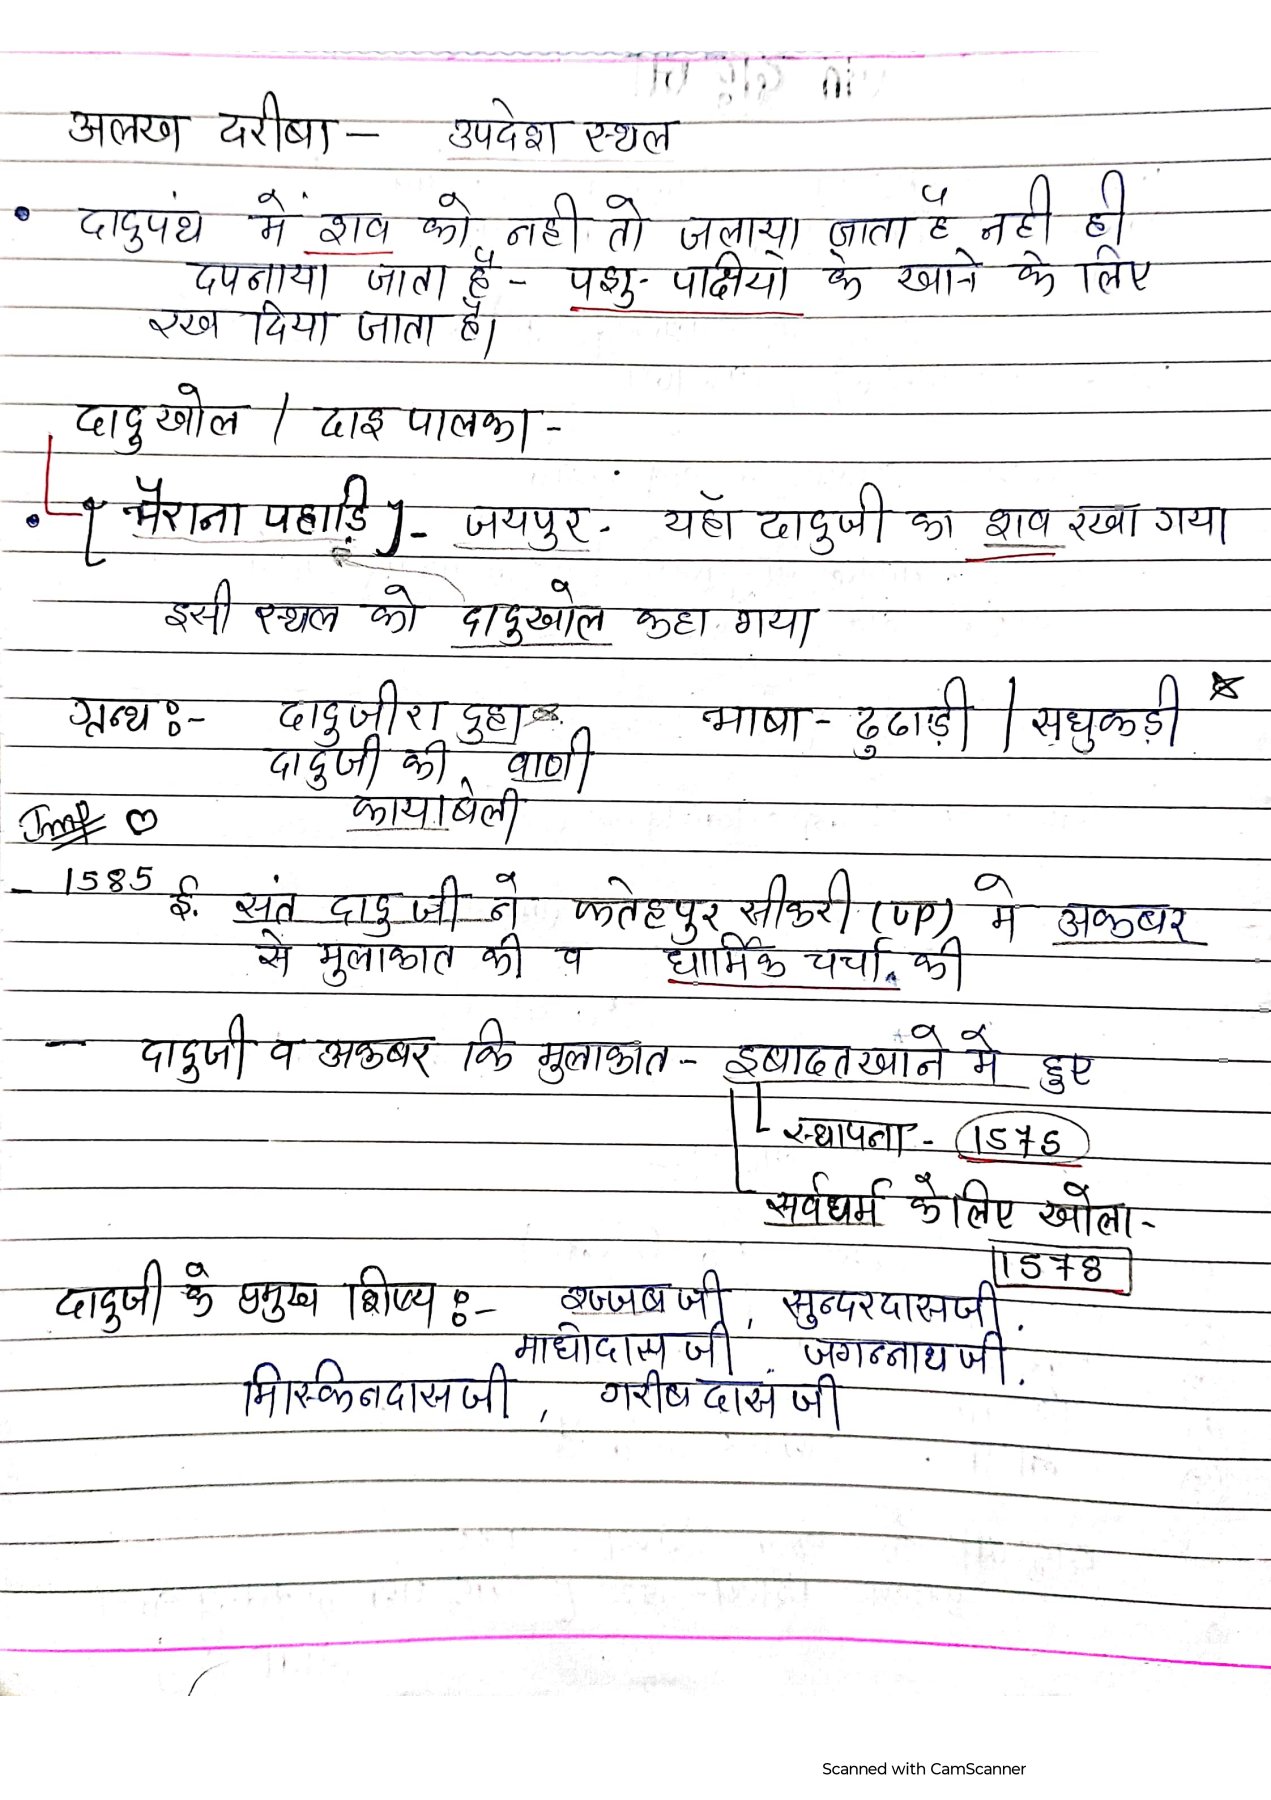 अलख दरीबा – उपदेश स्थल
• दादुपंथ में शव को नही तो जलाया जाता है नही ही
दपनाया जाता है - पशु-पक्षियो के खाने के लिए
रख दिया जाता है।
दादुखोल / दाइ पालका -
• [भैराना पहाड़ि] - जयपुर - यहाँ दादुजी का शव रखा गया
इसी स्थल को दादुखोल कहा गया
ग्रन्थ :- दादुजी रा दुहा भाषा - ढुढाड़ी / सधुकड़ी
दादुजी की वाणी
कायाबेली
Imp
- 1585 ई. संत दादु जी ने फतेहपुर सीकरी (UP) मे अकबर
से मुलाकात की व धार्मिक चर्चा की
- दादुजी व अकबर कि मुलाकात - इबादतखाने मे हुए
स्थापना - 1575
सर्वधर्म के लिए खोला -
1578
दादुजी के प्रमुख शिष्य :- रज्जब जी, सुन्दरदासजी,
माधोदास जी, जगन्नाथ जी,
मिस्किनदास जी, गरीबदास जी
Scanned with CamScanner